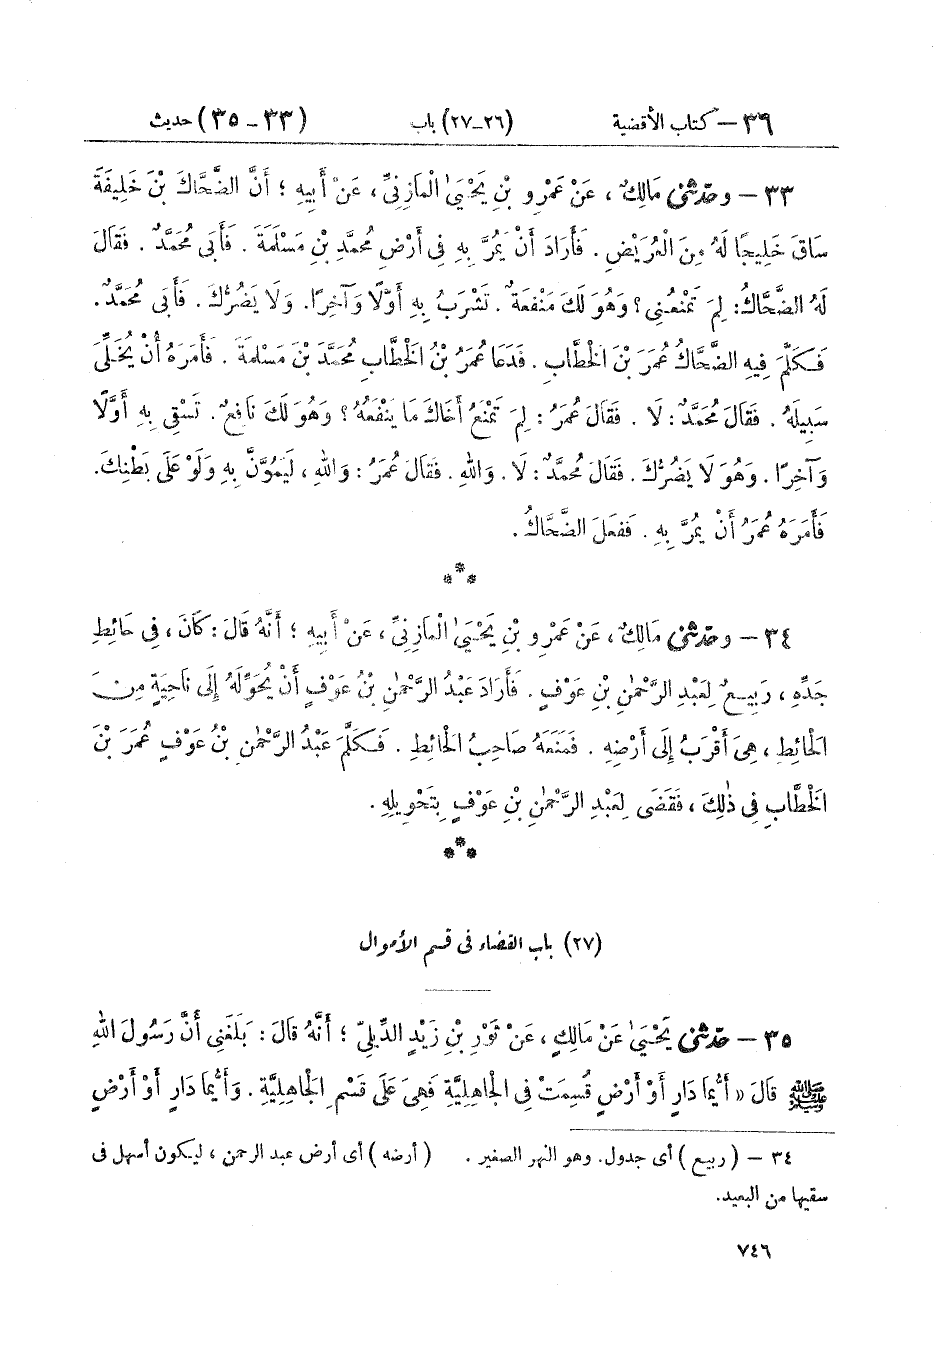 ٣٩ – كتاب الأقضية (٢٦-٢٧) باب (٣٣ - ٣٥) حديث
٣٣ – وحَدَّثَنِى مَالِكٌ، عَنْ عَمْرِو بْنِ يَحْيَىٰ الْمَازِنِىِّ، عَنْ أَبِيهِ؛ أَنَّ الضَّحَّاكَ بْنَ خَلِيفَةَ
سَاقَ خَلِيجًا لَهُ مِنَ الْعُرَيْضِ. فَأَرَادَ أَنْ يَمُرَّ بِهِ فِى أَرْضِ مُحَمَّدِ بْنِ مَسْلَمَةَ. فَأَبَى مُحَمَّدٌ. فَقَالَ
لَهُ الضَّحَّاكُ: لِمَ تَمْنَعُنِى؟ وَهُوَ لَكَ مَنْفَعَةٌ. تَشْرَبُ بِهِ أَوَّلًا وَآخِرًا. وَلَا يَضُرُّكَ. فَأَبَى مُحَمَّدٌ.
فَكَلَّمَ فِيهِ الضَّحَّاكُ عُمَرَ بْنَ الْخَطَّابِ. فَدَعَا عُمَرُ بْنُ الْخَطَّابِ مُحَمَّدَ بْنَ مَسْلَمَةَ. فَأَمَرَهُ أَنْ يُخَلِّىَ
سَبِيلَهُ. فَقَالَ مُحَمَّدٌ: لَا. فَقَالَ عُمَرُ: لِمَ تَمْنَعُ أَخَاكَ مَا يَنْفَعُهُ؟ وَهُوَ لَكَ نَافِعٌ. تَسْقِى بِهِ أَوَّلًا
وَآخِرًا. وَهُوَ لَا يَضُرُّكَ. فَقَالَ مُحَمَّدٌ: لَا. وَاللهِ. فَقَالَ عُمَرُ: وَاللهِ، لَيَمُرَّنَّ بِهِ وَلَوْ عَلَى بَطْنِكَ.
فَأَمَرَهُ عُمَرُ أَنْ يَمُرَّ بِهِ. فَفَعَلَ الضَّحَّاكُ.
***
٣٤ – وحَدَّثَنِى مَالِكٌ، عَنْ عَمْرِو بْنِ يَحْيَىٰ الْمَازِنِىِّ، عَنْ أَبِيهِ؛ أَنَّهُ قَالَ: كَانَ، فِى حَائِطِ
جَدِّهِ، رَبِيعٌ لِعَبْدِ الرَّحْمٰنِ بْنِ عَوْفٍ. فَأَرَادَ عَبْدُ الرَّحْمٰنِ بْنُ عَوْفٍ أَنْ يُحَوِّلَهُ إِلَى نَاحِيَةٍ مِنَ
الْحَائِطِ، هِىَ أَقْرَبُ إِلَى أَرْضِهِ. فَمَنَعَهُ صَاحِبُ الْحَائِطِ. فَكَلَّمَ عَبْدُ الرَّحْمٰنِ بْنُ عَوْفٍ عُمَرَ بْنَ
الْخَطَّابِ فِى ذٰلِكَ، فَقَضَى لِعَبْدِ الرَّحْمٰنِ بْنِ عَوْفٍ بِتَحْوِيلِهِ.
***
(٢٧) باب القضاء فى قسم الأموال
٣٥ – حَدَّثَنِى يَحْيَىٰ عَنْ مَالِكٍ، عَنْ ثَوْرِ بْنِ زَيْدٍ الدِّيلِىِّ؛ أَنَّهُ قَالَ: بَلَغَنِى أَنَّ رَسُولَ اللهِ
ﷺ قَالَ « أَيُّمَا دَارٍ أَوْ أَرْضٍ قُسِمَتْ فِى الْجَاهِلِيَّةِ فَهِىَ عَلَى قَسْمِ الْجَاهِلِيَّةِ. وَأَيُّمَا دَارٍ أَوْ أَرْضٍ
٣٤ – (ربيع) أى جدول. وهو النهر الصغير. (أرضه) أى أرض عبد الرحمن، ليكون أسهل فى
سقيها من البعيد.
٧٤٦